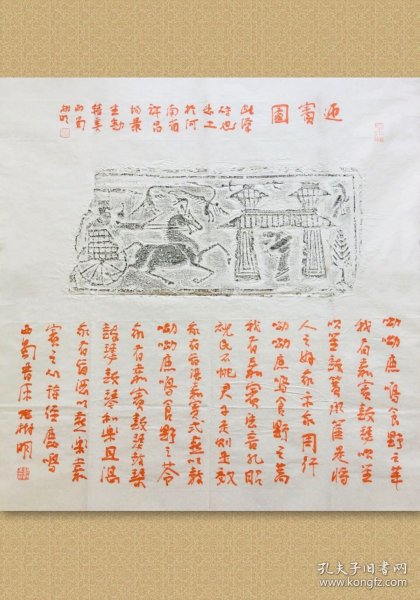 迎賓圖
此漢
磚也
出土
於河
南省
許昌
為最
生動
精美
西蜀
樹明
呦呦鹿鳴食野之苹
我有嘉賓鼓瑟吹笙
吹笙鼓簧承筐是將
人之好我示我周行
呦呦鹿鳴食野之蒿
我有嘉賓德音孔昭
視民不恌君子是則是效
我有旨酒嘉賓式燕以敖
呦呦鹿鳴食野之芩
我有嘉賓鼓瑟鼓琴
鼓瑟鼓琴和樂且湛
我有旨酒以燕樂嘉
賓之心詩經鹿鳴
西蜀樹明
孔夫子旧书网
www.kongfz.com